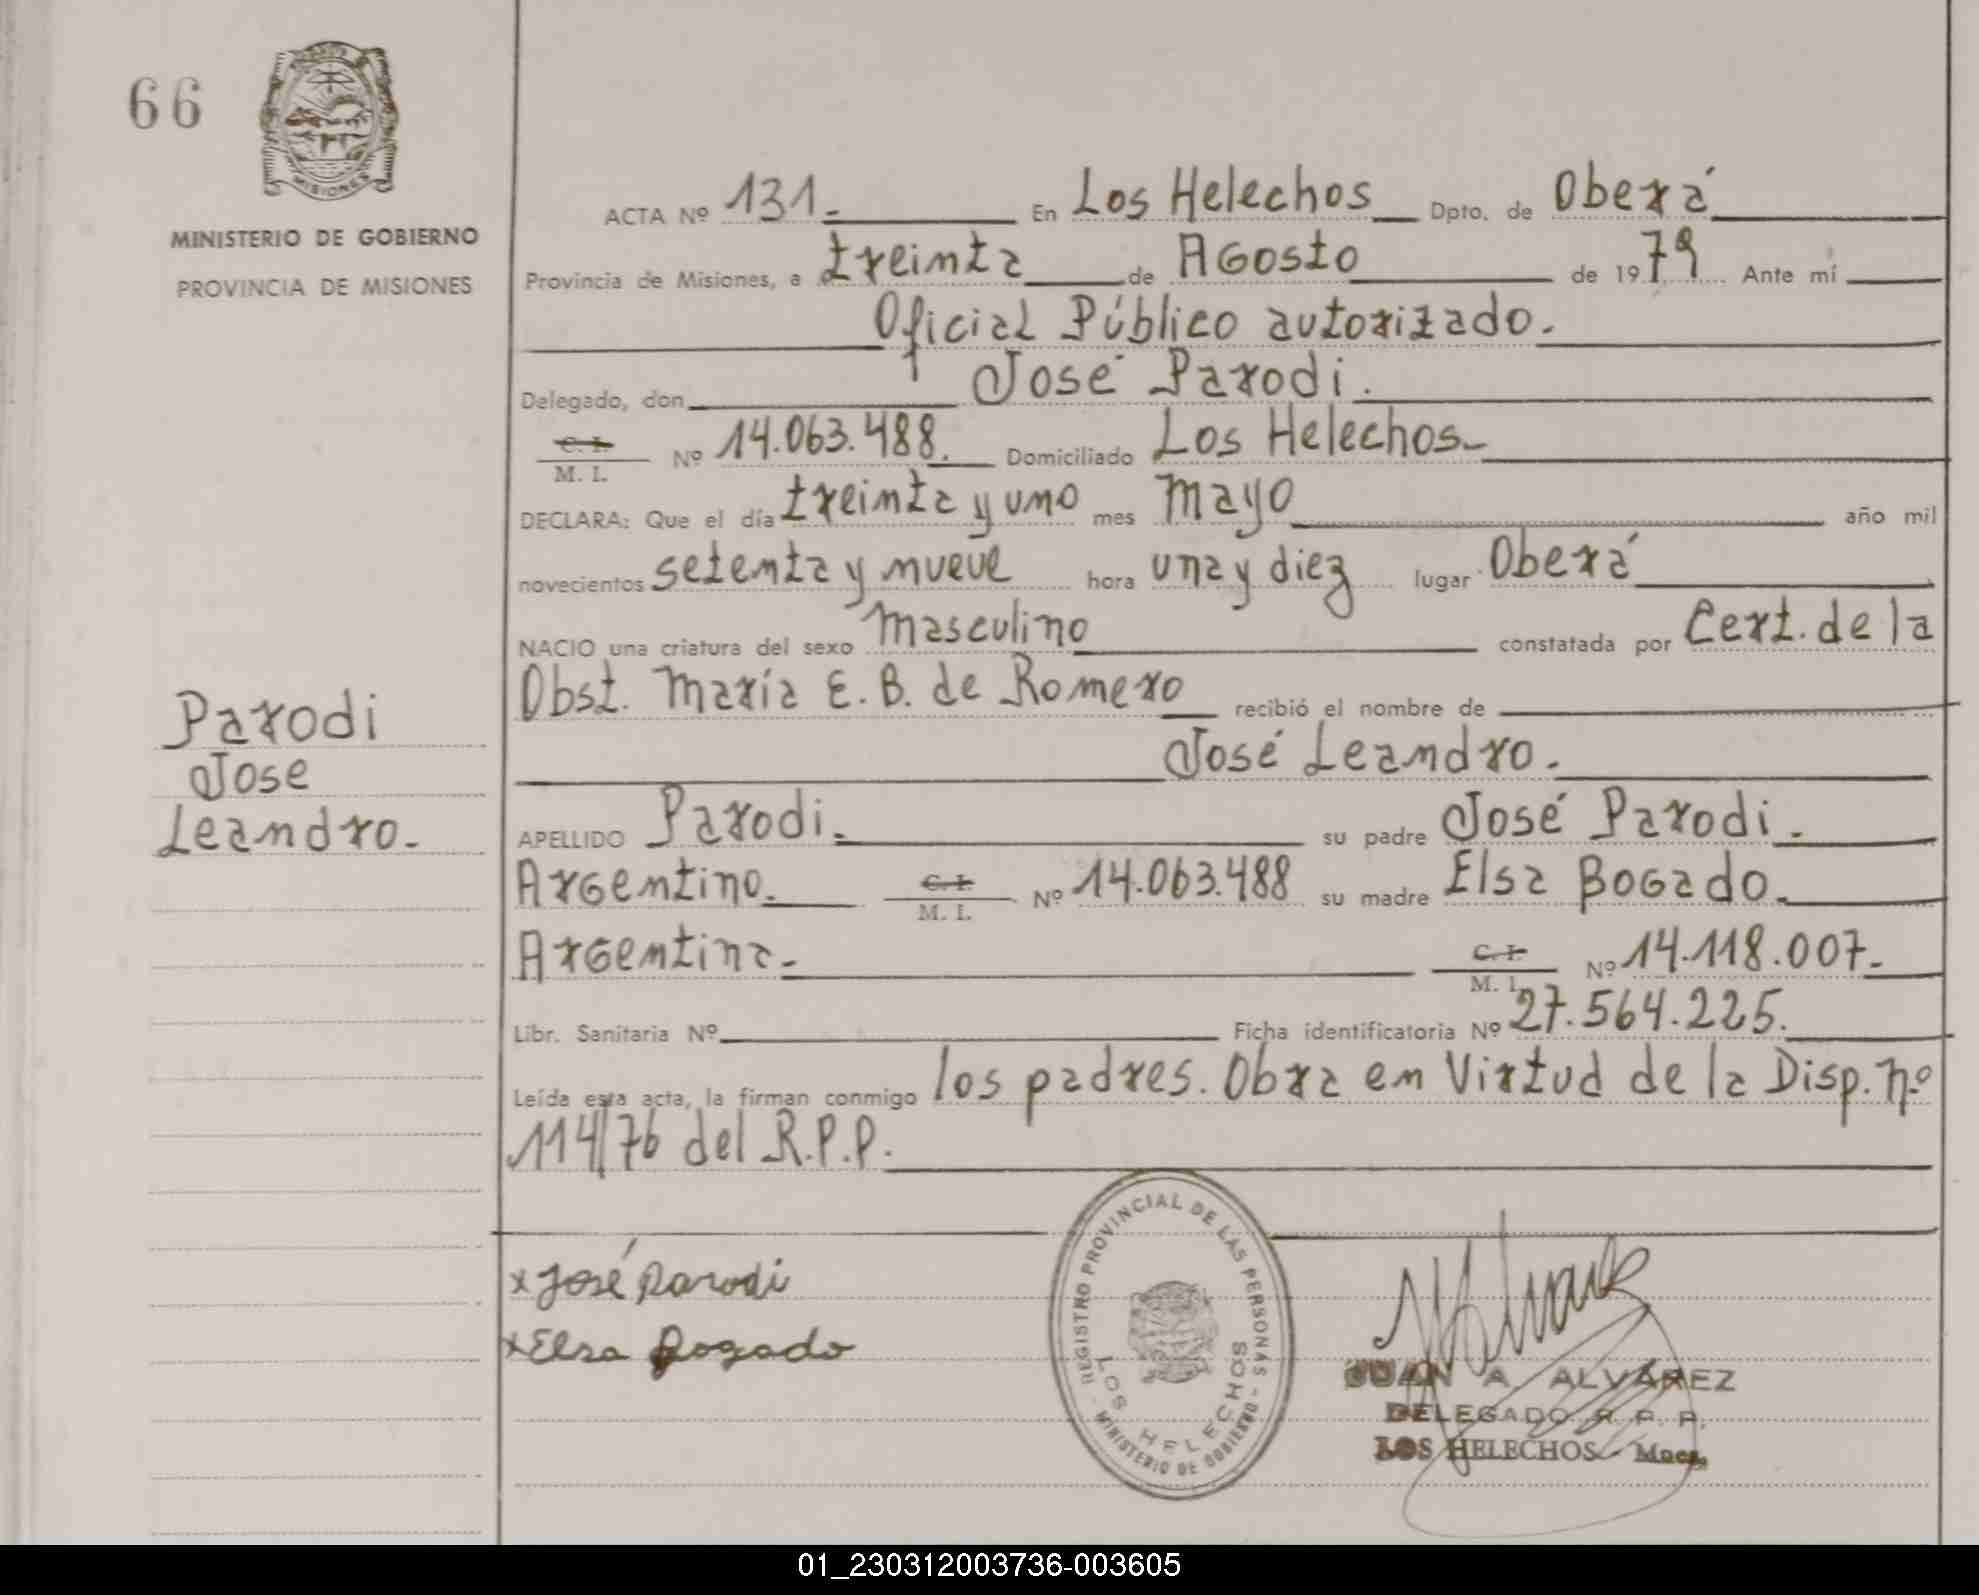 66
MISIONES
MINISTERIO DE GOBIERNO
PROVINCIA DE MISIONES
Parodi
Jose
Leandro.
ACTA Nº 131. En Los Helechos Dpto. de Oberá
Provincia de Misiones, a treinta de Agosto de 1979 Ante mí
Oficial Público autorizado.
Delegado, don José Parodi.
C. I.
M. I. Nº 14.063.488. Domiciliado Los Helechos
DECLARA: Que el día treinta y uno mes Mayo año mil
novecientos setenta y nueve hora una y diez lugar Oberá
NACIO una criatura del sexo Masculino constatada por Cert. de la
Obst. María E. B. de Romero recibió el nombre de
José Leandro.
APELLIDO Parodi. su padre José Parodi.
Argentino. C. I. M. I. Nº 14.063.488 su madre Elsa Bogado.
Argentina. C. I. M. I. Nº 14.118.007.
Libr. Sanitaria Nº Ficha identificatoria Nº 27.564.225.
Leída esta acta, la firman conmigo los padres. Obra en Virtud de la Disp. nº
114/76 del R.P.P.
x José Parodi
x Elsa Bogado
REGISTRO PROVINCIAL DE LAS PERSONAS
LOS HELECHOS
MINISTERIO DE GOBIERNO
JUAN A. ALVAREZ
DELEGADO R. P. P.
LOS HELECHOS - Mnes.
01_230312003736-003605